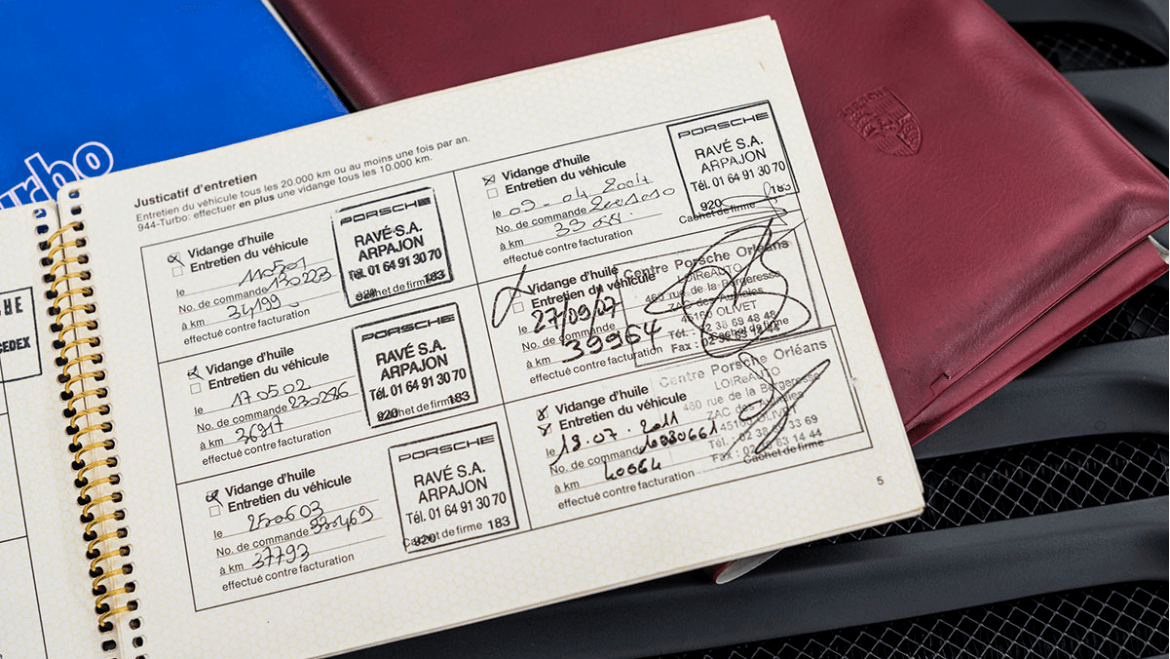 urbo
HE
CEDEX
Justicatif d'entretien
Entretien du véhicule tous les 20.000 km ou au moins une fois par an.
944-Turbo: effectuer en plus une vidange tous les 10.000 km.
Vidange d'huile
Entretien du véhicule
le 110501
No. de commande 130223
à km 34199
effectué contre facturation
PORSCHE
RAVÉ S.A.
ARPAJON
Tél. 01 64 91 30 70
920 183
Cachet de firme
Vidange d'huile
Entretien du véhicule
le 170502
No. de commande 230286
à km 36917
effectué contre facturation
PORSCHE
RAVÉ S.A.
ARPAJON
Tél. 01 64 91 30 70
920 183
Cachet de firme
Vidange d'huile
Entretien du véhicule
le 250603
No. de commande 330469
à km 37793
effectué contre facturation
PORSCHE
RAVÉ S.A.
ARPAJON
Tél. 01 64 91 30 70
920 183
Cachet de firme
Vidange d'huile
Entretien du véhicule
le 09-04-2004
No. de commande
à km
effectué contre facturation
PORSCHE
RAVÉ S.A.
ARPAJON
Tél. 01 64 91 30 70
920 183
Cachet de firme
Vidange d'huile
Entretien du véhicule
le 27/09/07
No. de commande
à km 39964
effectué contre facturation
Centre Porsche Orléans
LOIReAUTO
460 rue de la Bergeresse
ZAC des Aulnaies
45160 OLIVET
Tél. : 02 38 69 48 48
Fax :
Cachet de firme
Vidange d'huile
Entretien du véhicule
le 18.07.2011
No. de commande 10080661
à km 40564
effectué contre facturation
Centre Porsche Orléans
LOIReAUTO
460 rue de la Bergeresse
ZAC des Aulnaies
45160 OLIVET
Tél. : 02 38 33 69
Fax : 02 38 63 14 44
Cachet de firme
5
PORSCHE